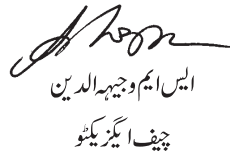 ایس ایم وجیہہ الدین
چیف ایگزیکٹو